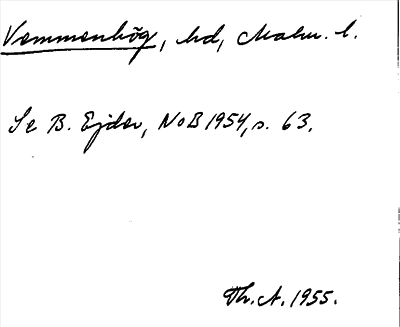 Vemmenhög, hd, Malm. l.
Se B. Ejder, NoB 1954, s. 63.
Th. A. 1955.